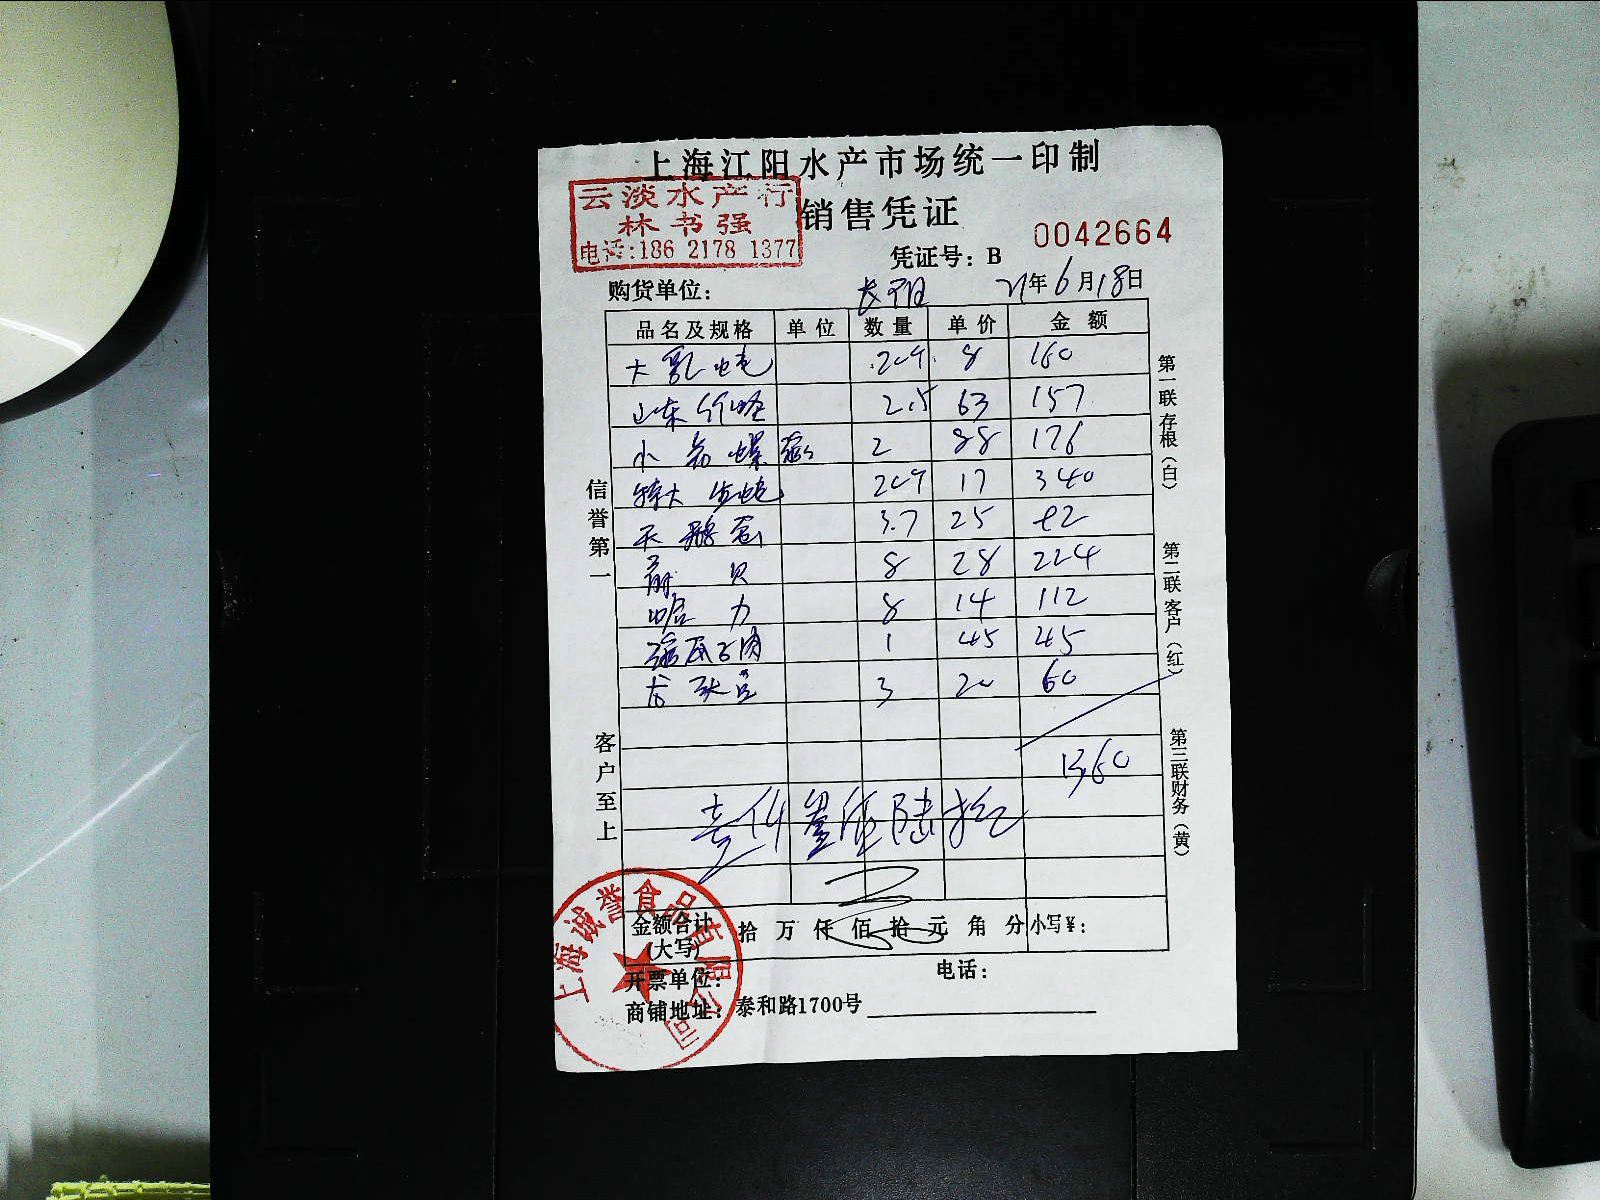 上海江阳水产市场统一印制
云淡水产行
林书强
电话:186 2178 1377
销售凭证
凭证号: B 0042664
购货单位: 21年6月18日
品名及规格 单位 数量 单价 金额
8 160
山东竹蛏 2.5 63 157
小 螺 2 88 176
特大 17 340
天鹅蛋 3.7 25 92
扇贝 8 28 224
哈力 8 14 112
1 45 45
3 20 60
1360
壹仟叁佰陆拾
金额合计(大写) 拾万仟佰拾元角分 小写¥:
开票单位: 电话:
商铺地址: 泰和路1700号
信誉第一
客户至上
第一联存根(白)
第二联客户(红)
第三联财务(黄)
上海诚誉食品有限公司